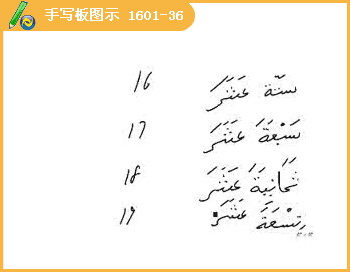 手写板图示 1601-36
16 ستة عَشَرَ
17 سَبْعَةَ عَشَرَ
18 ثَمَانِيَةَ عَشَرَ
19 تِسْعَةَ عَشَرَ